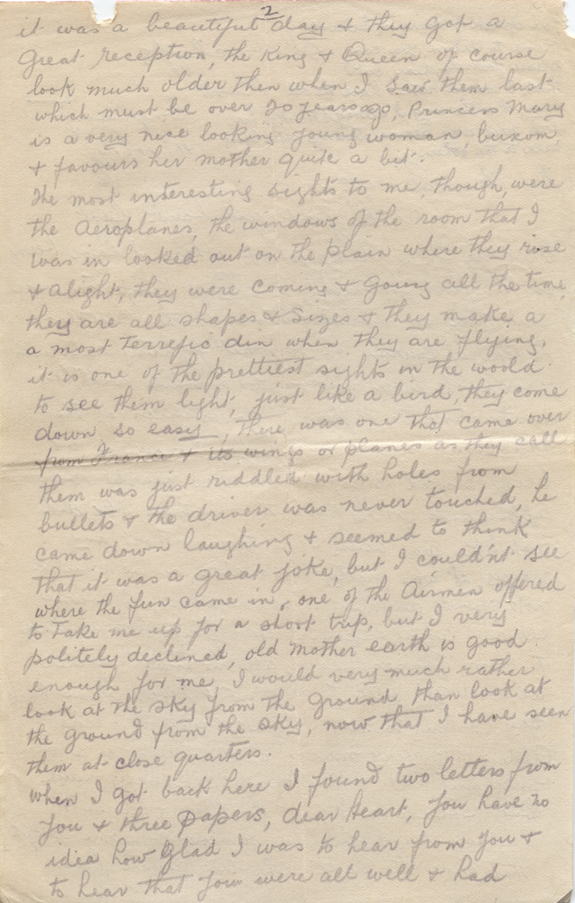 2
it was a beautiful day & they got a
great reception, the King & Queen of course
look much older then when I saw them last
which must be over 20 years ago, Princess Mary
is a very nice looking young woman, buxom
& favours her mother quite a bit.
The most interesting sights to me, though, were
the Aeroplanes, the windows of the room that I
was in looked out on the plain where they rise
& alight, they were coming & going all the time,
they are all shapes & sizes & they make a
a most terrefic din when they are flying,
it is one of the prettiest sights in the woold
to see them light, just like a bird, they come
down so easy, there was one that came over
from France & its wings or planes as they call
them was just riddled with holes from
bullets & the driver was never touched, he
came down laughing & seemed to think
that it was a great joke, but I could'nt see
where the fun came in, one of the Airmen offered
to take me up for a short trip, but I very
politely declined, old mother earth is good
enough for me, I would very much rather
look at the sky from the ground than look at
the ground from the sky, now that I have seen
them at close quarters.
when I got back here I found two letters from
you & three papers, dear Heart, you have no
idea how glad I was to hear from you &
to hear that you were all well & had